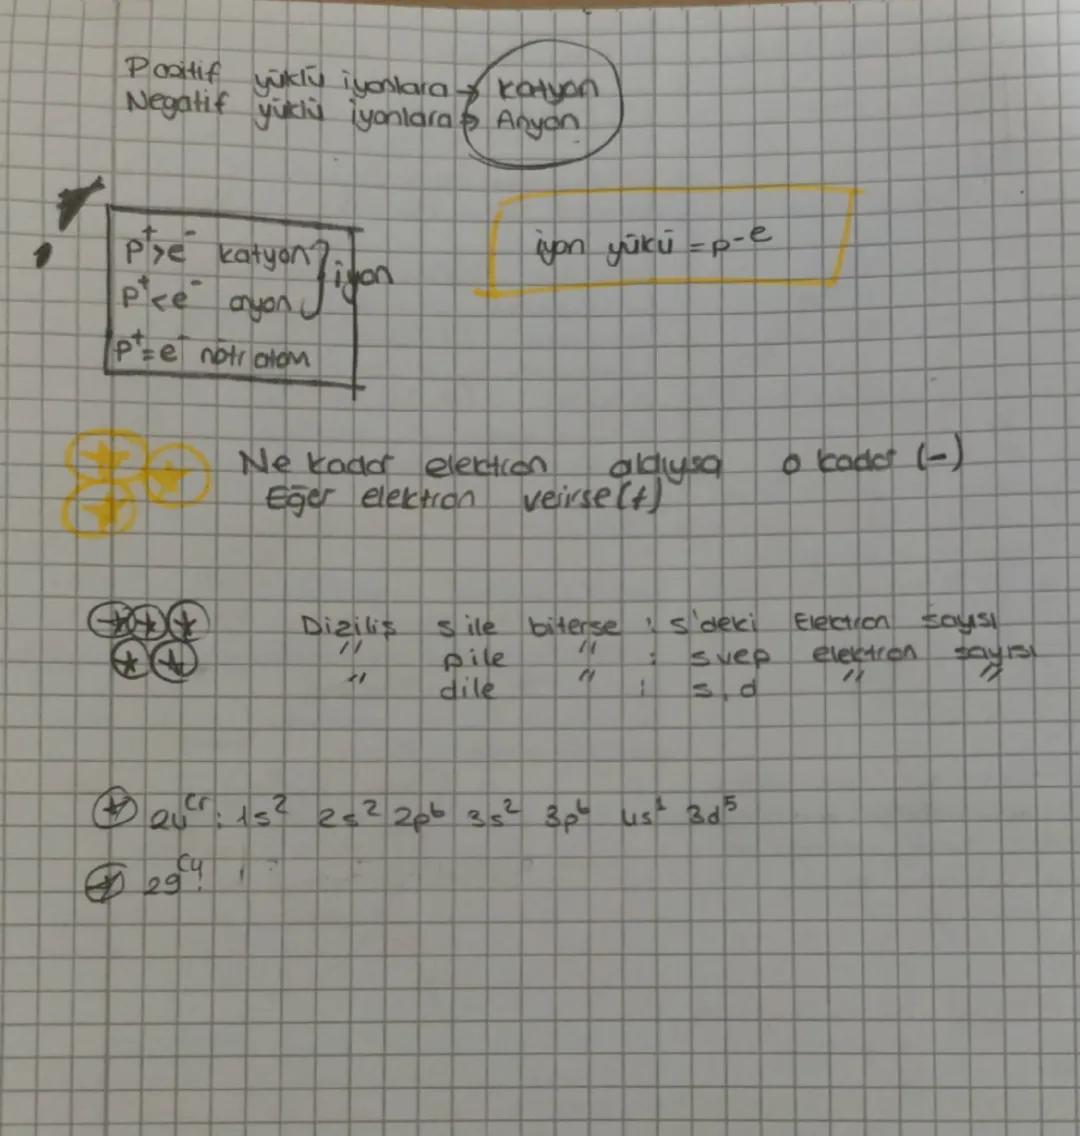 Pozitif yüklü iyonlara → katyon
Negatif yüklü iyonlara → Anyon
p⁺>e⁻ katyon } iyon
p⁺<e⁻ anyon
p⁺=e⁻ nötr atom
iyon yükü = p-e
Ne kadar elektron aldıysa o kadar (-)
Eğer elektron verirse (+)
Diziliş s ile biterse : s'deki Elektron sayısı
" p ile " : s ve p elektron sayısı
" d ile " : s, d " "
24Cr: 1s² 2s² 2p⁶ 3s² 3p⁶ 4s¹ 3d⁵
29Cu: